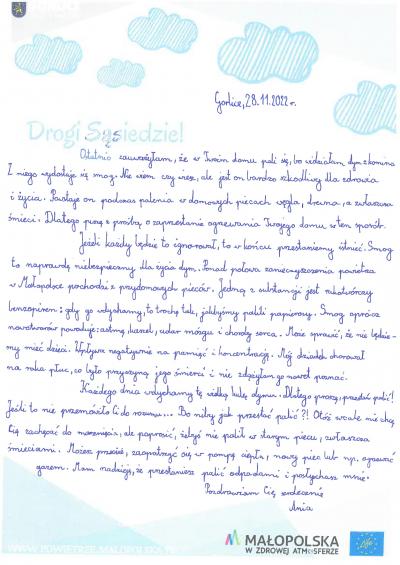 Gorlice, 28.11.2022 r.
Drogi Sąsiedzie!
Ostatnio zauważyłam, że w Twoim domu pali się, bo widziałam dym z komina
I niego wydobyje się smog. Nie wiem czy wiesz, ale jest on bardzo szkodliwy dla zdrowia
i życia. Powstaje on podczas palenia w domowych piecach węgla, drewna, a zwłaszcza
śmieci. Dlatego piszę z prośbą o zaprzestanie ogrzewania Twojego domu w ten sposób.
Jeżeli każdy będzie to ignorował, to w końcu przestaniemy istnieć. Smog
to naprawdę niebezpieczny dla życia dym. Ponad połowa zanieczyszczenia powietrza
w Małopolsce pochodzi z przydomowych pieców. Jedną z substancji jest rakotwórczy
benzopiren: gdy go wdychamy, to trochę tak, jakbyśmy palili papierosy. Smog oprócz
nowotworów powoduje: astmę, kaszel, udar mózgu i choroby serca. Może sprawić, że nie będzie-
my mieć dzieci. Wpływa negatywnie na pamięć i koncentrację. Mój dziadek chorował
na raka płuc, co było przyczyną jego śmierci i nie zdążyłam go nawet poznać.
Każdego dnia wdychamy tę wielką kulę dymu. Dlatego proszę, przestań palić!
Jeśli to nie przemówiło Ci do rozumu... Bo niby jak przestać palić?! Otóż wcale nie chcę
Cię zachęcać do marznięcia, ale poprosić, żebyś nie palił w starym piecu, zwłaszcza
śmieciami. Możesz przecież, zaopatrzyć się w pompę ciepła, nowy piec lub np. ogrzewać
gazem. Mam nadzieję, że przestaniesz palić odpadami i posłuchasz mnie.
Pozdrawiam Cię serdecznie
Ania
WWW.POWIETRZE.MALOPOLSKA.PL
MAŁOPOLSKA
W ZDROWEJ ATMOSFERZE